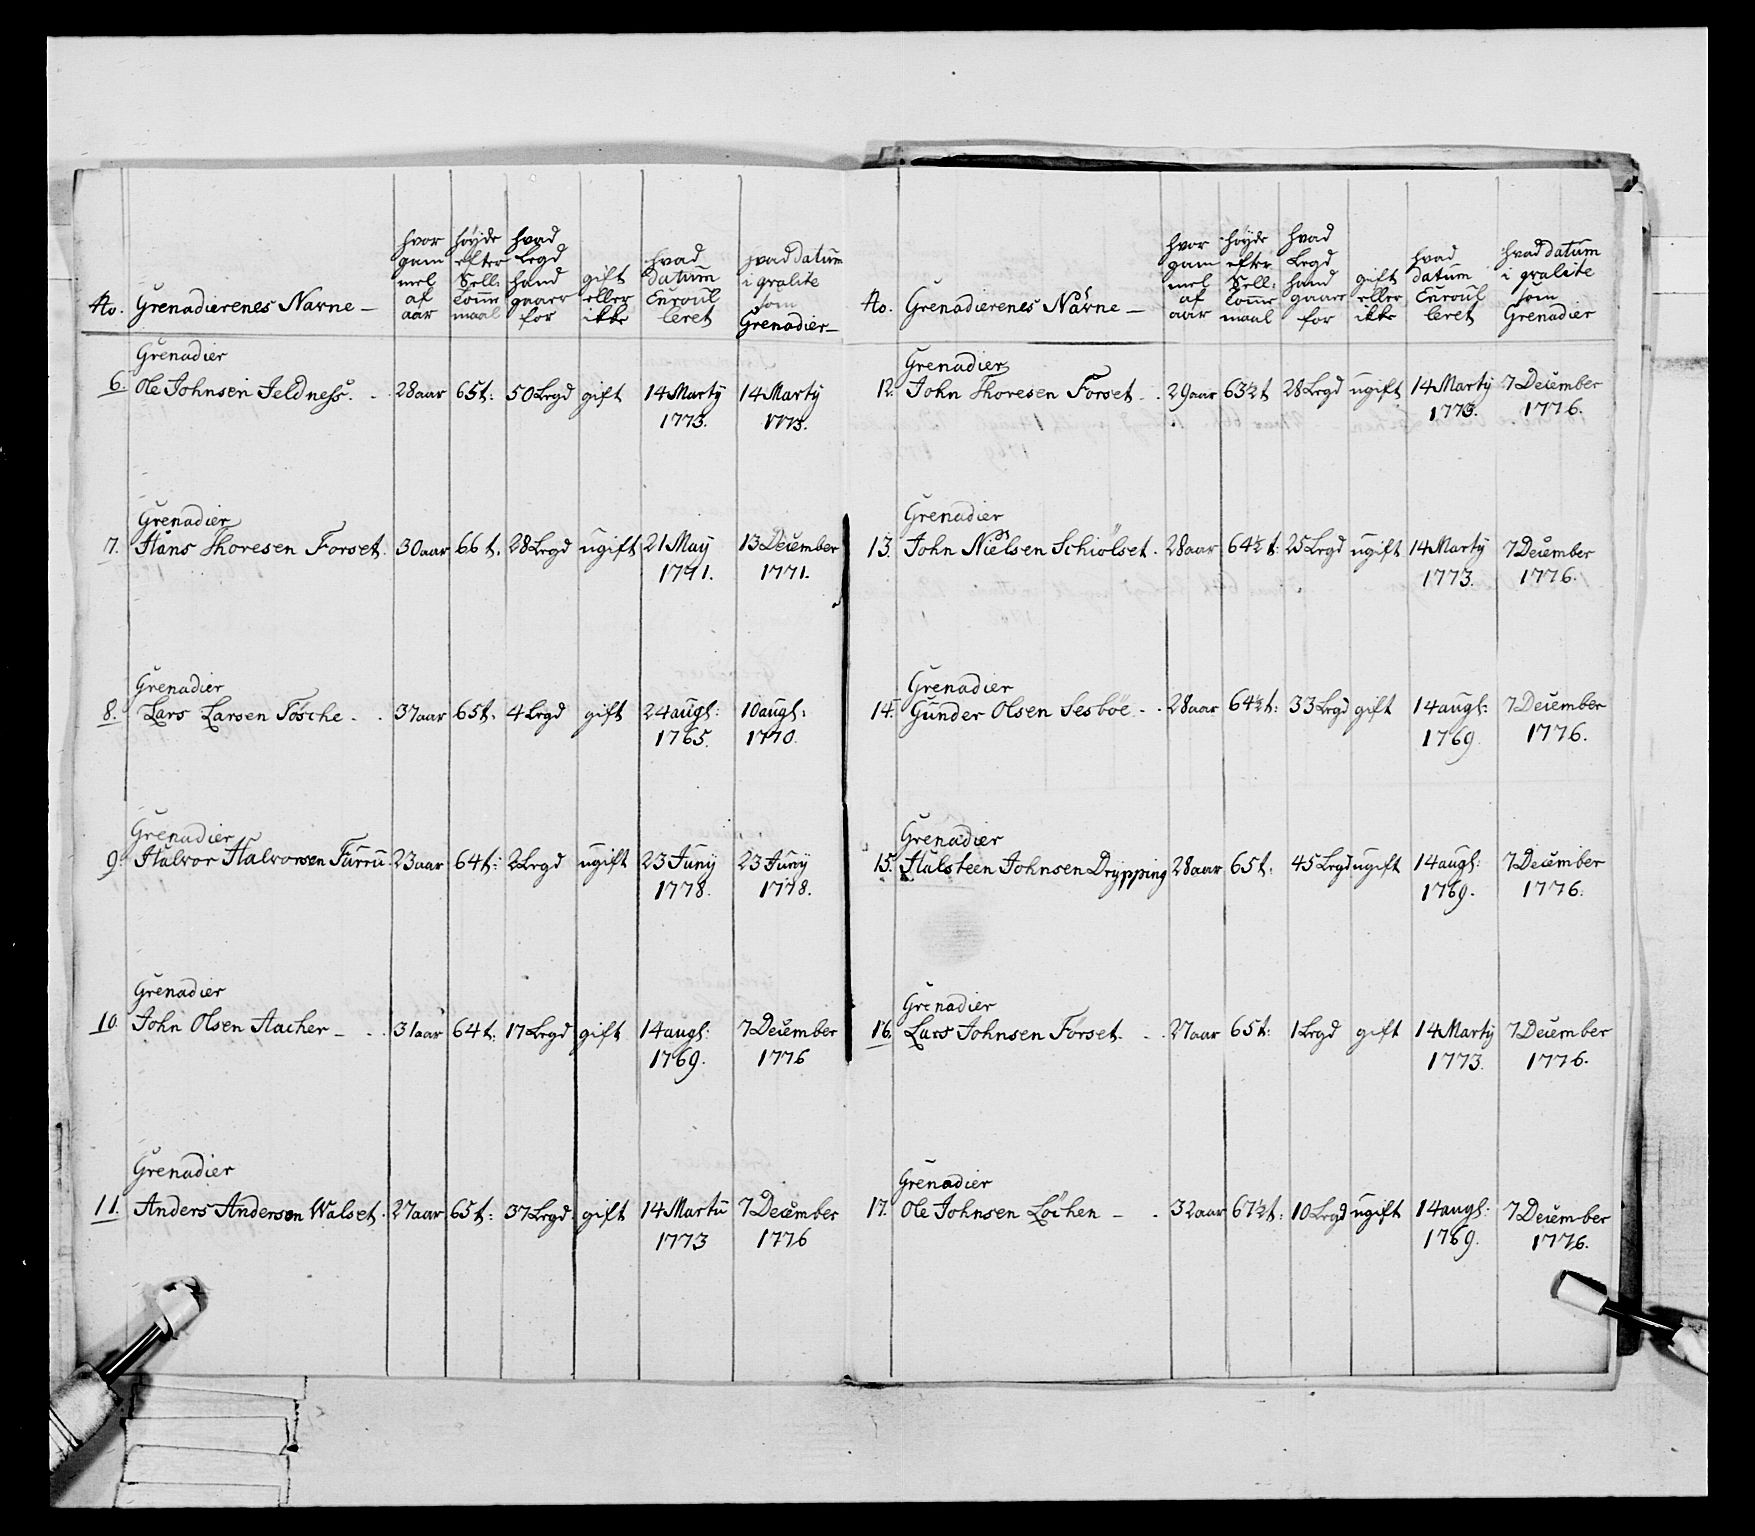 No. Grenadierenes Navne — hvor gammel af aar høyde efter Sell: Comemaal hvad Legd hand gaaer for gift eller ikke hvad datum Enroulleret hvad datum i qvalite som Grenadier —
Grenadier
6. Ole Johnsen Jeldness. - 28 aar 65 t: 50 Legd gift 14 Marty 14 Marty
1773. 1773.
Grenadier
7. Hans Thoresen Forset. 30 aar 66 t. 28 Legd ugift 21 May 13 December
1771. 1771.
Grenadier
8. Lars Larsen Fosche - . 37 aar 65 t. 4 Legd gift 24 augt: 10 augt.
1765. 1770.
Grenadier
9. Halvor Halvorsen Furru. 23 aar 64 t: 2 Legd ugift 23 Juny 23 Juny
1778. 1778.
Grenadier
10. John Olsen Aacher - . 31 aar 64 t: 17 Legd gift 14 augt: 7 December
1769. 1776
Grenadier
11. Anders Andersen Walset. 27 aar 65 t: 37 Legd gift 14 Martii 7 December
1773 1776
No. Grenadierenes Navne — hvor gammel af aar høyde efter Sell: Comemaal hvad Legd hand gaaer for gift eller ikke hvad datum Enroulleret hvad datum i qvalite som Grenadier
Grenadier
12. John Thoresen Forset - . 29 aar 63½ t 28 Legd ugift 14 Marty 7 December
1773. 1776.
Grenadier
13. John Nielsen Schiölset. 28 aar 64½ t. 25 Legd ugift 14 Marty 7 December
1773. 1776.
Grenadier
14. Gunder Olsen Sesböe - . 28 aar 64½ t: 33 Legd gift 14 augt: 7 December
1769. 1776.
Grenadier
15. Halsteen Johnsen Drypping 28 aar 65 t. 45 Legd ugift 14 augt: 7 December
1769. 1776.
Grenadier
16. Lars Johnsen Forset. - . 27 aar 65 t: 1 Legd gift 14 Marty 7 December
1773. 1776.
Grenadier
17. Ole Johnsen Löchen - . 32 aar 67½ t: 10 Legd ugift 14 augt: 7 December
1769. 1776.